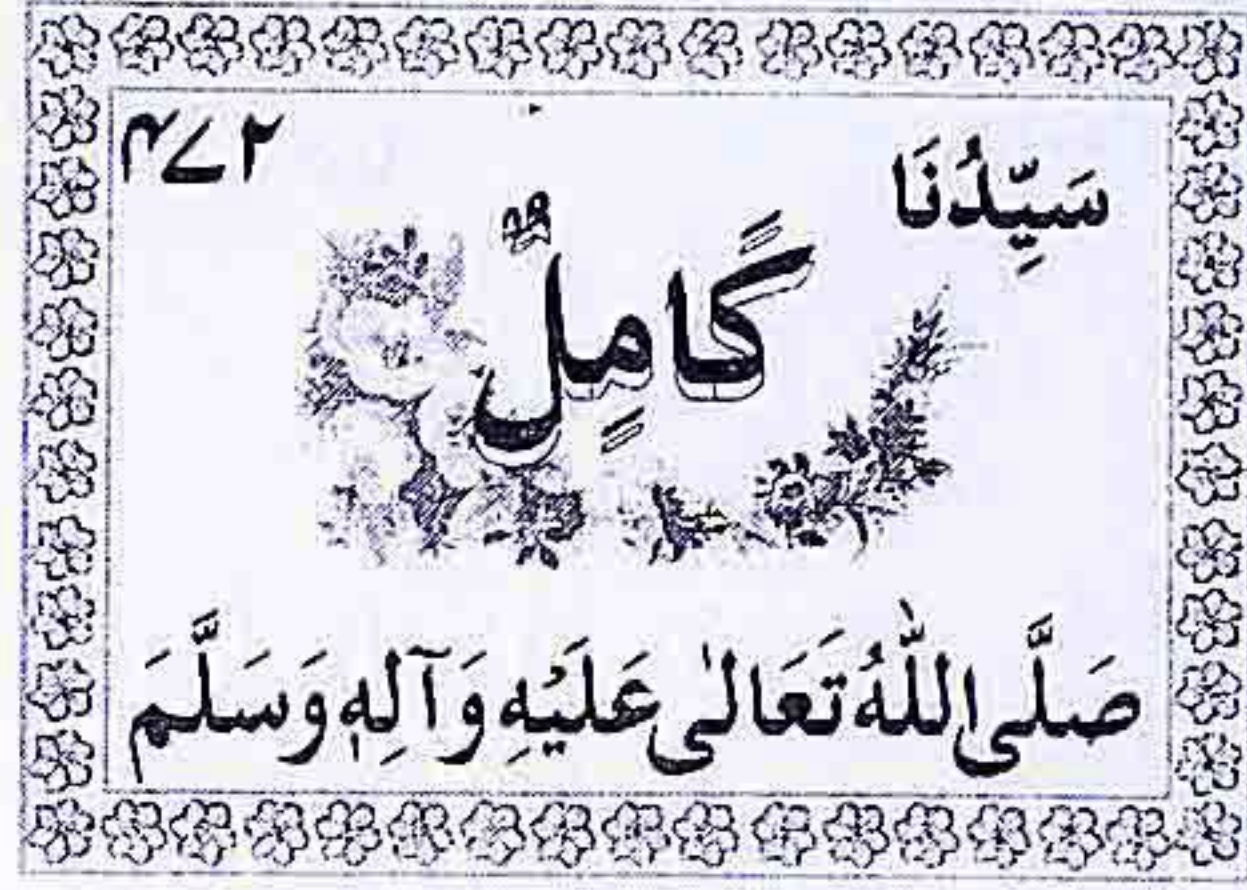 سَيِّدُنَا ۴۷۲
کَامِلٌ
صَلَّى اللّٰهُ تَعَالٰى عَلَيْهِ وَآلِهٖ وَسَلَّمَ